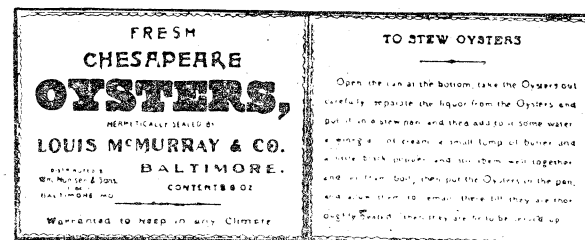 FRESH
CHESAPEAKE
OYSTERS,
HERMETICALLY SEALED BY
LOUIS McMURRAY & CO.
BALTIMORE.
DISTRIBUTED BY
Wm. Numsen & Sons
BALTIMORE MD
CONTENTS 8 OZ
Warranted to keep in any Climate
TO STEW OYSTERS
Open the can at the bottom, take the Oysters out
carefully separate the liquor from the Oysters and
put it in a stew pan and then add to it some water
of cream a small lump of butter and
a little black pepper and stir them well together
and let them boil, then put the Oysters in the pan,
and allow them to remain there till they are thor
oughly heated then they are fit to be served up